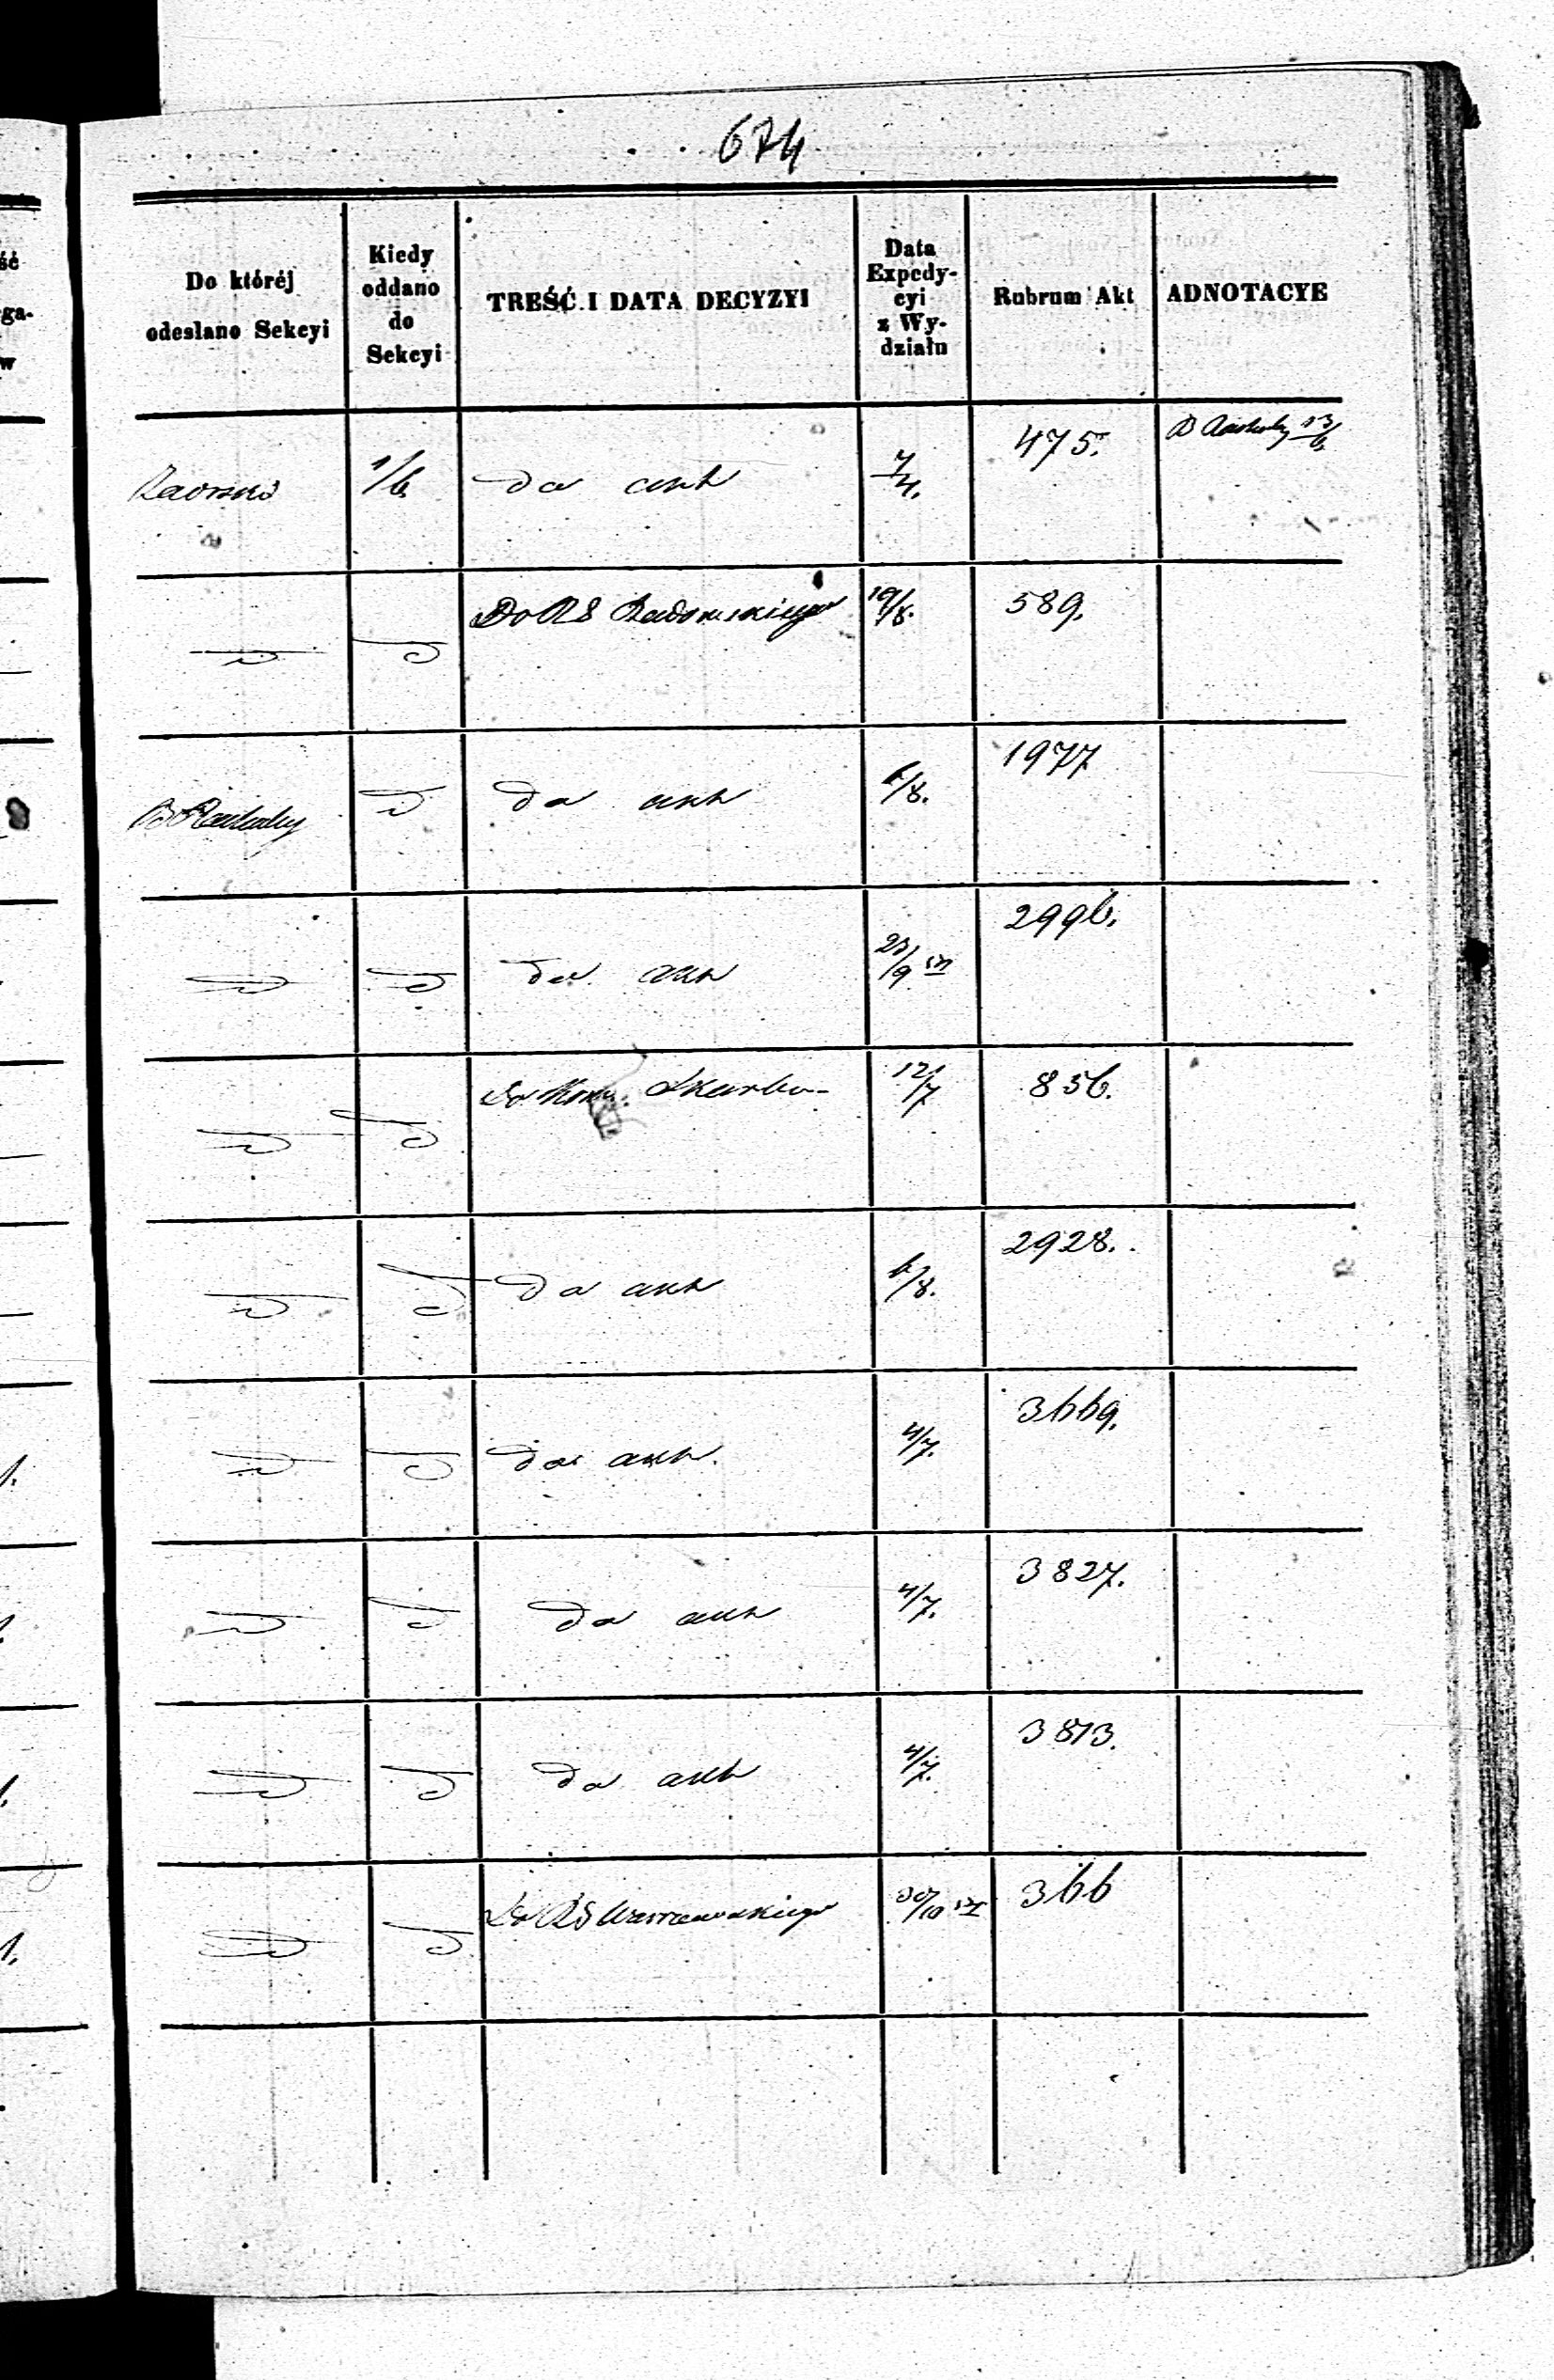 674
Do któréj
odesłano Sekcyi
Kiedy
oddano
do
Sekcyi
TREŚĆ I DATA DECYZYI
Data
Expedy-
cyi
z Wy-
działu
Rubrum Akt
ADNOTACYE
1/6 da akt 7/4. 475. 13/6
Do RS Radomskiego 19/8. 589.
da akt 6/8. 1977
da akt 23/9 2996.
Do Kom. Skarbu 12/7 856.
da akt 6/8. 2928.
da akt. 4/7. 3669.
da akt 4/7. 3827.
da akt 4/7. 3813.
Do RS Warszawskiego 30/10 366